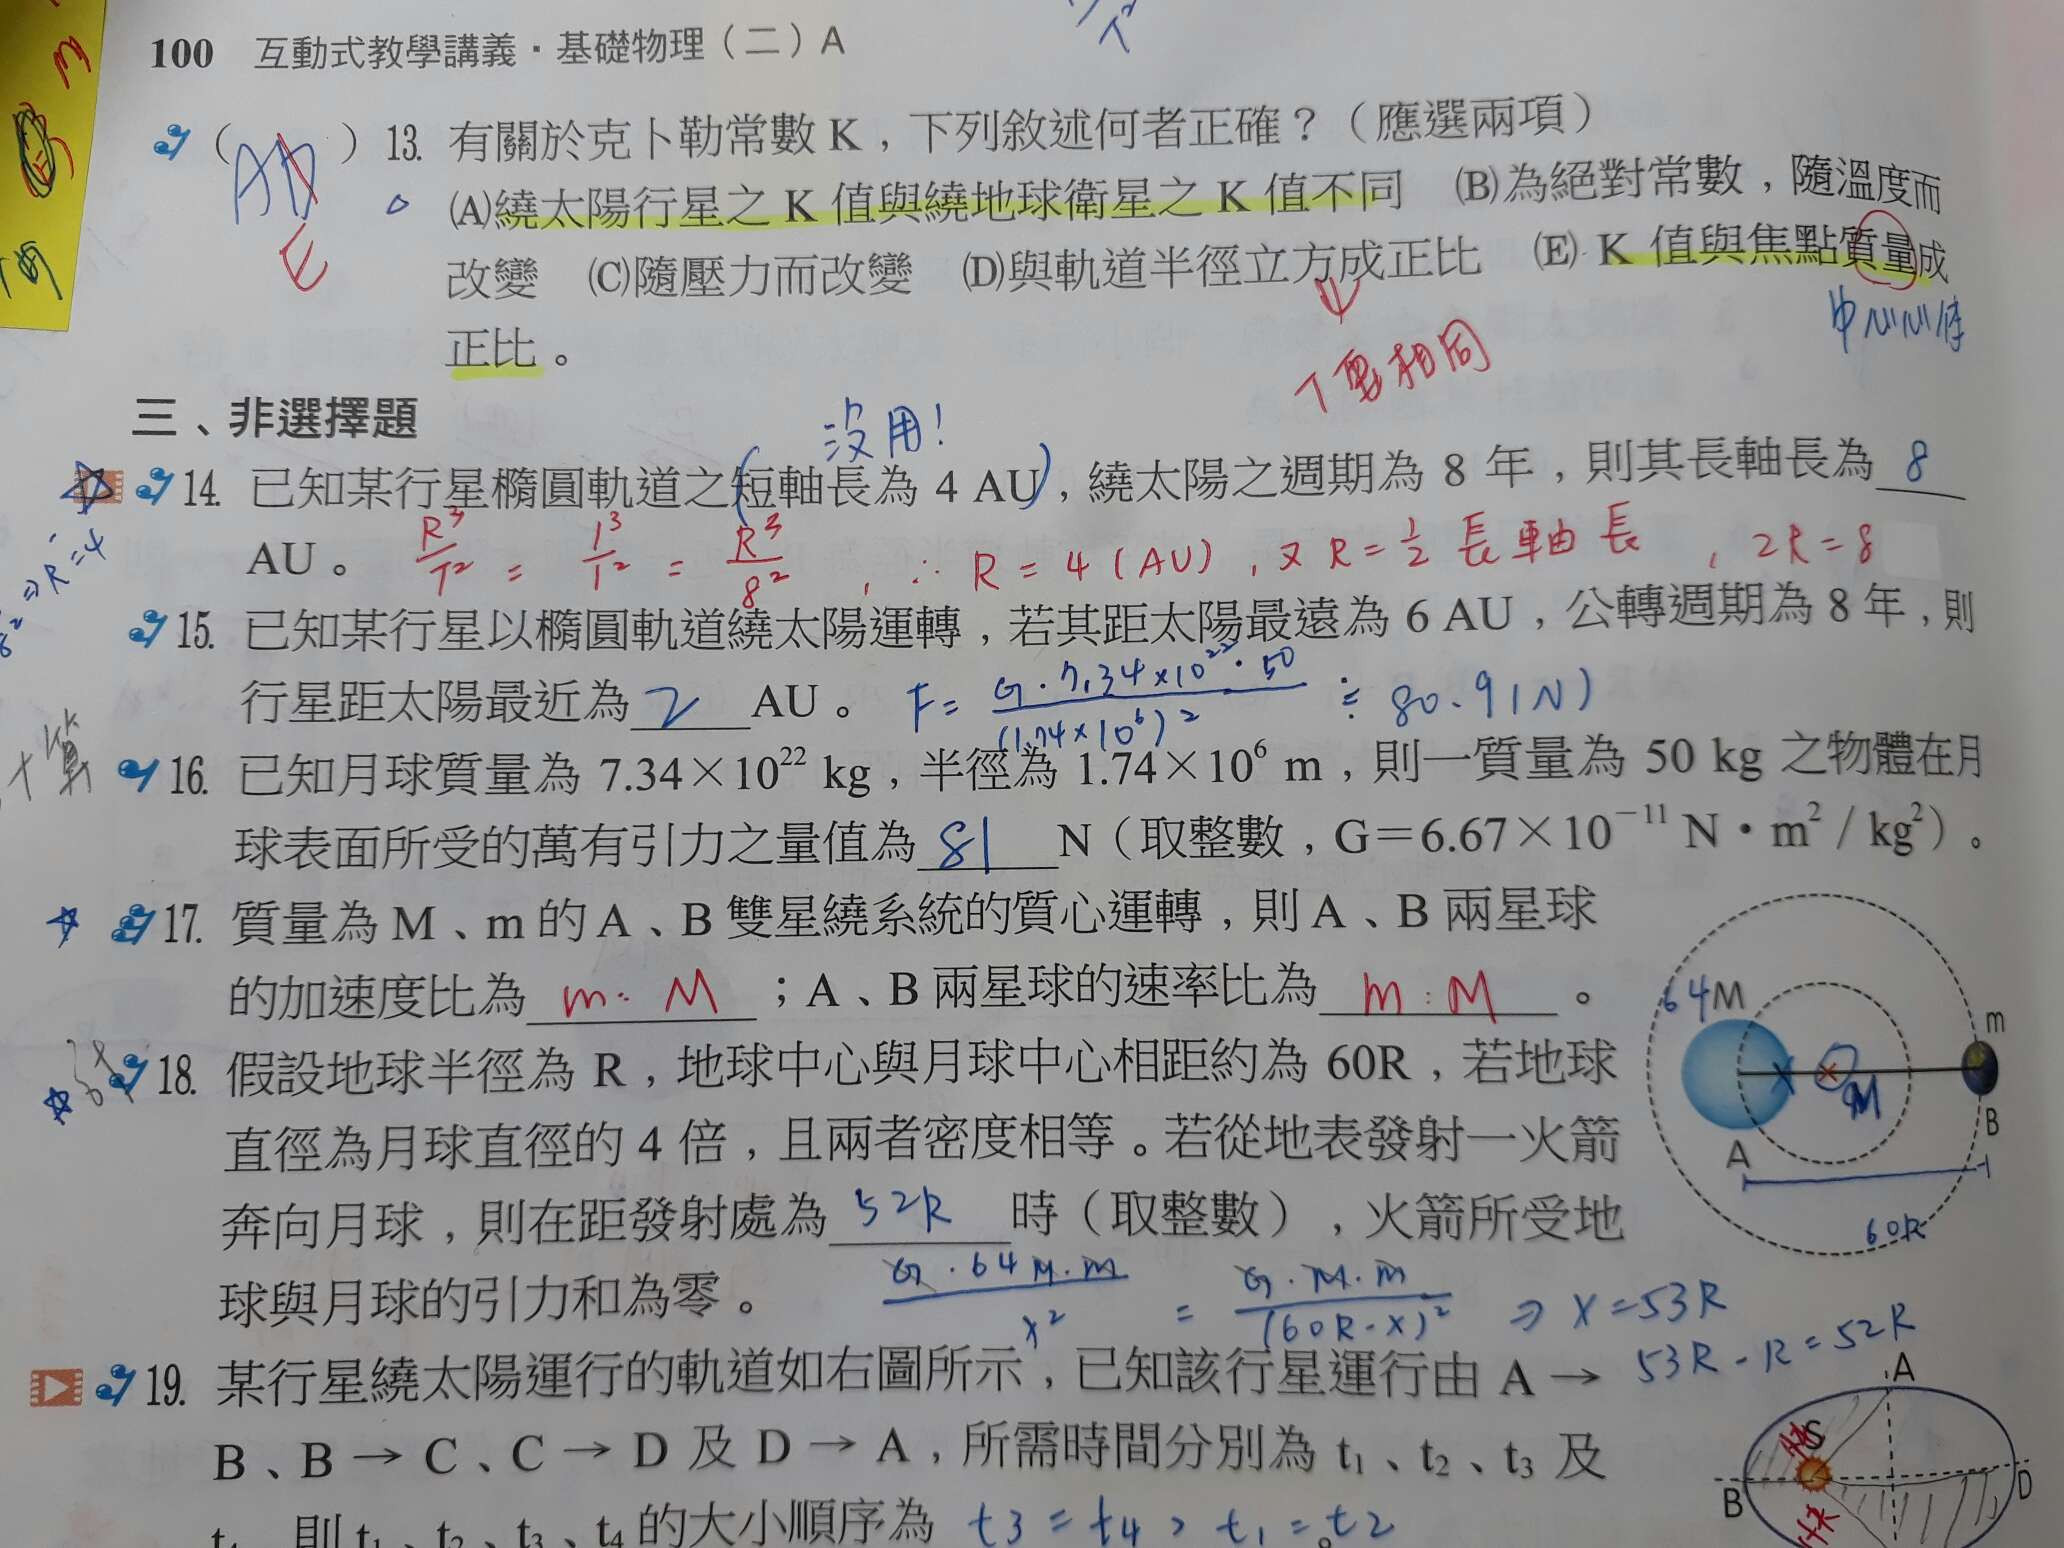 100 互動式教學講義・基礎物理(二)A
( AD ) 13. 有關於克卜勒常數 K,下列敘述何者正確?(應選兩項)
E
(A)繞太陽行星之 K 值與繞地球衛星之 K 值不同 (B)為絕對常數,隨溫度而
改變 (C)隨壓力而改變 (D)與軌道半徑立方成正比 (E) K 值與焦點質量成
正比。
T要相同
三、非選擇題
沒用!
14. 已知某行星橢圓軌道之(短軸長為 4 AU),繞太陽之週期為 8 年,則其長軸長為 8
AU。 R³/T² = 1³/1² = R³/8² , ∴ R = 4 (AU) , 又 R = 1/2 長軸長 , 2R = 8
⇒ R = 4
15. 已知某行星以橢圓軌道繞太陽運轉,若其距太陽最遠為 6 AU,公轉週期為 8 年,則
行星距太陽最近為 2 AU。 F = G·7.34×10²²·50/(1.74×10⁶)² ≒ 80.9(N)
16. 已知月球質量為 7.34×10²² kg,半徑為 1.74×10⁶ m,則一質量為 50 kg 之物體在月
球表面所受的萬有引力之量值為 81 N(取整數,G=6.67×10⁻¹¹ N・m²/kg²)。
17. 質量為 M、m 的 A、B 雙星繞系統的質心運轉,則 A、B 兩星球
的加速度比為 m : M ;A、B 兩星球的速率比為 m : M 。
64M
m
M
A
B
60R
18. 假設地球半徑為 R,地球中心與月球中心相距約為 60R,若地球
直徑為月球直徑的 4 倍,且兩者密度相等。若從地表發射一火箭
奔向月球,則在距發射處為 52R 時(取整數),火箭所受地
球與月球的引力和為零。 G·64M·m/x² = G·M·m/(60R-x)² ⇒ x = 53R
53R - R = 52R
19. 某行星繞太陽運行的軌道如右圖所示,已知該行星運行由 A →
B、B → C、C → D 及 D → A,所需時間分別為 t₁、t₂、t₃ 及
t₄,則 t₁、t₂、t₃、t₄ 的大小順序為 t3 = t4 > t1 = t2 。
A
S
B
D